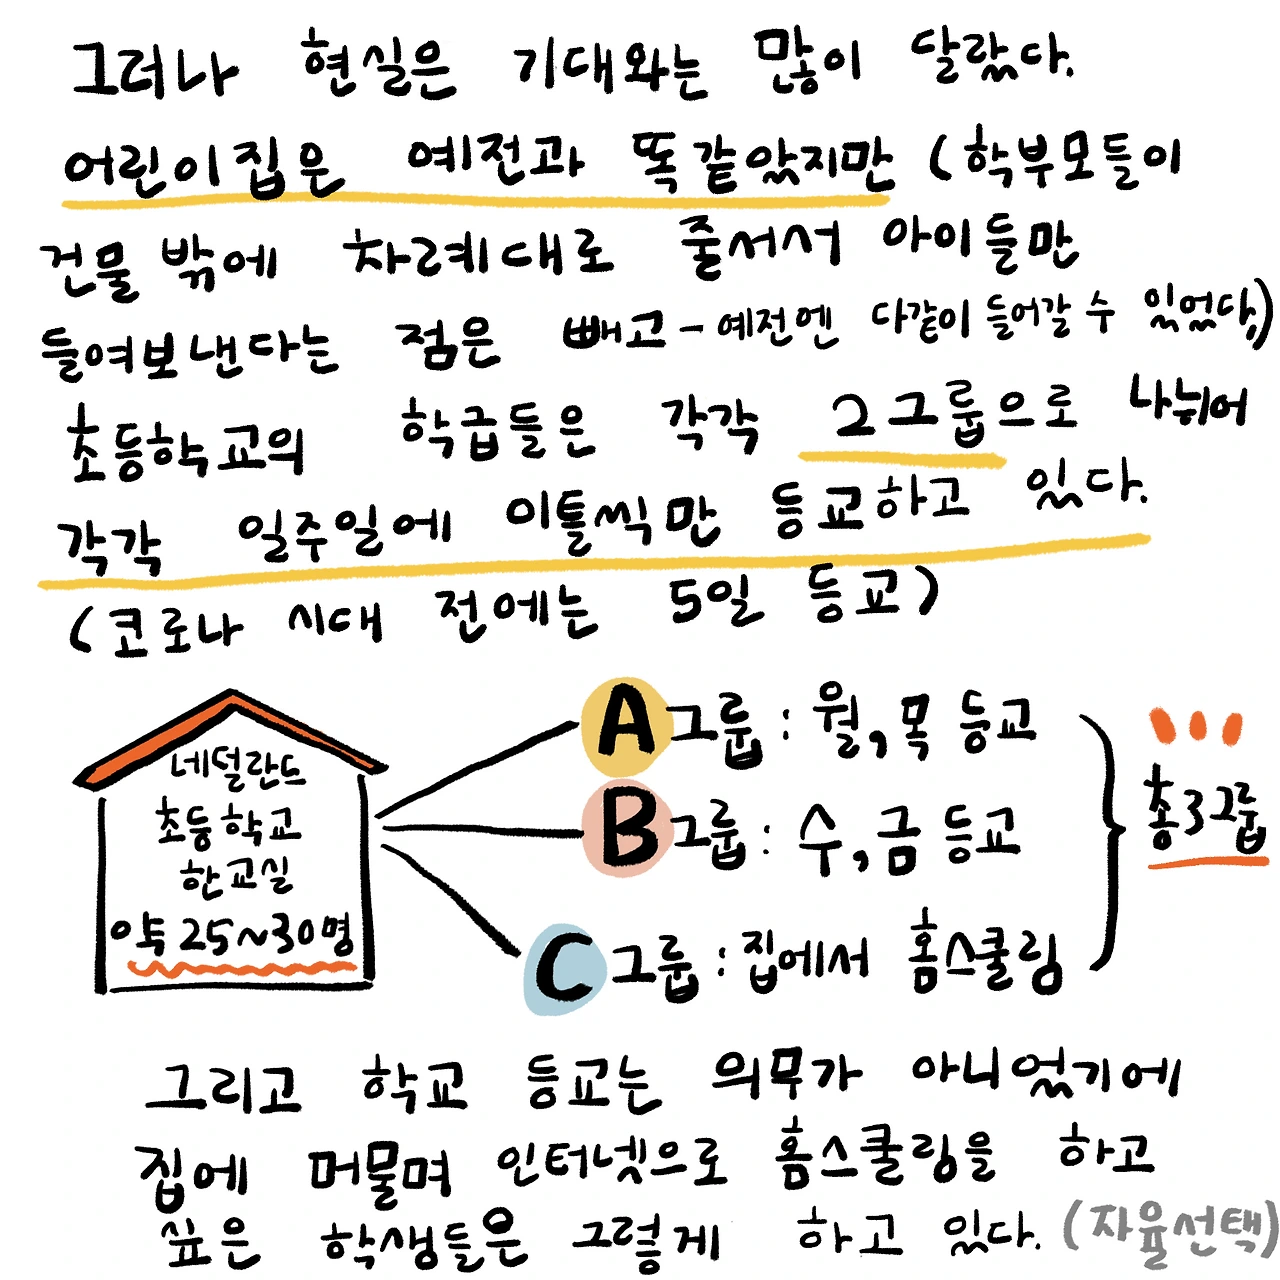 그러나 현실은 기대와는 많이 달랐다.
어린이집은 예전과 똑같았지만 (학부모들이
건물 밖에 차례대로 줄서서 아이들만
들여보낸다는 점은 빼고 - 예전엔 다같이 들어갈 수 있었다,)
초등학교의 학급들은 각각 2그룹으로 나뉘어
각각 일주일에 이틀씩만 등교하고 있다.
(코로나 시대 전에는 5일 등교)
네덜란드
초등학교
한교실
약 25~30명
A그룹 : 월, 목 등교
B그룹 : 수, 금 등교
C그룹 : 집에서 홈스쿨링
총3그룹
그리고 학교 등교는 의무가 아니었기에
집에 머물며 인터넷으로 홈스쿨링을 하고
싶은 학생들은 그렇게 하고 있다. (자율선택)